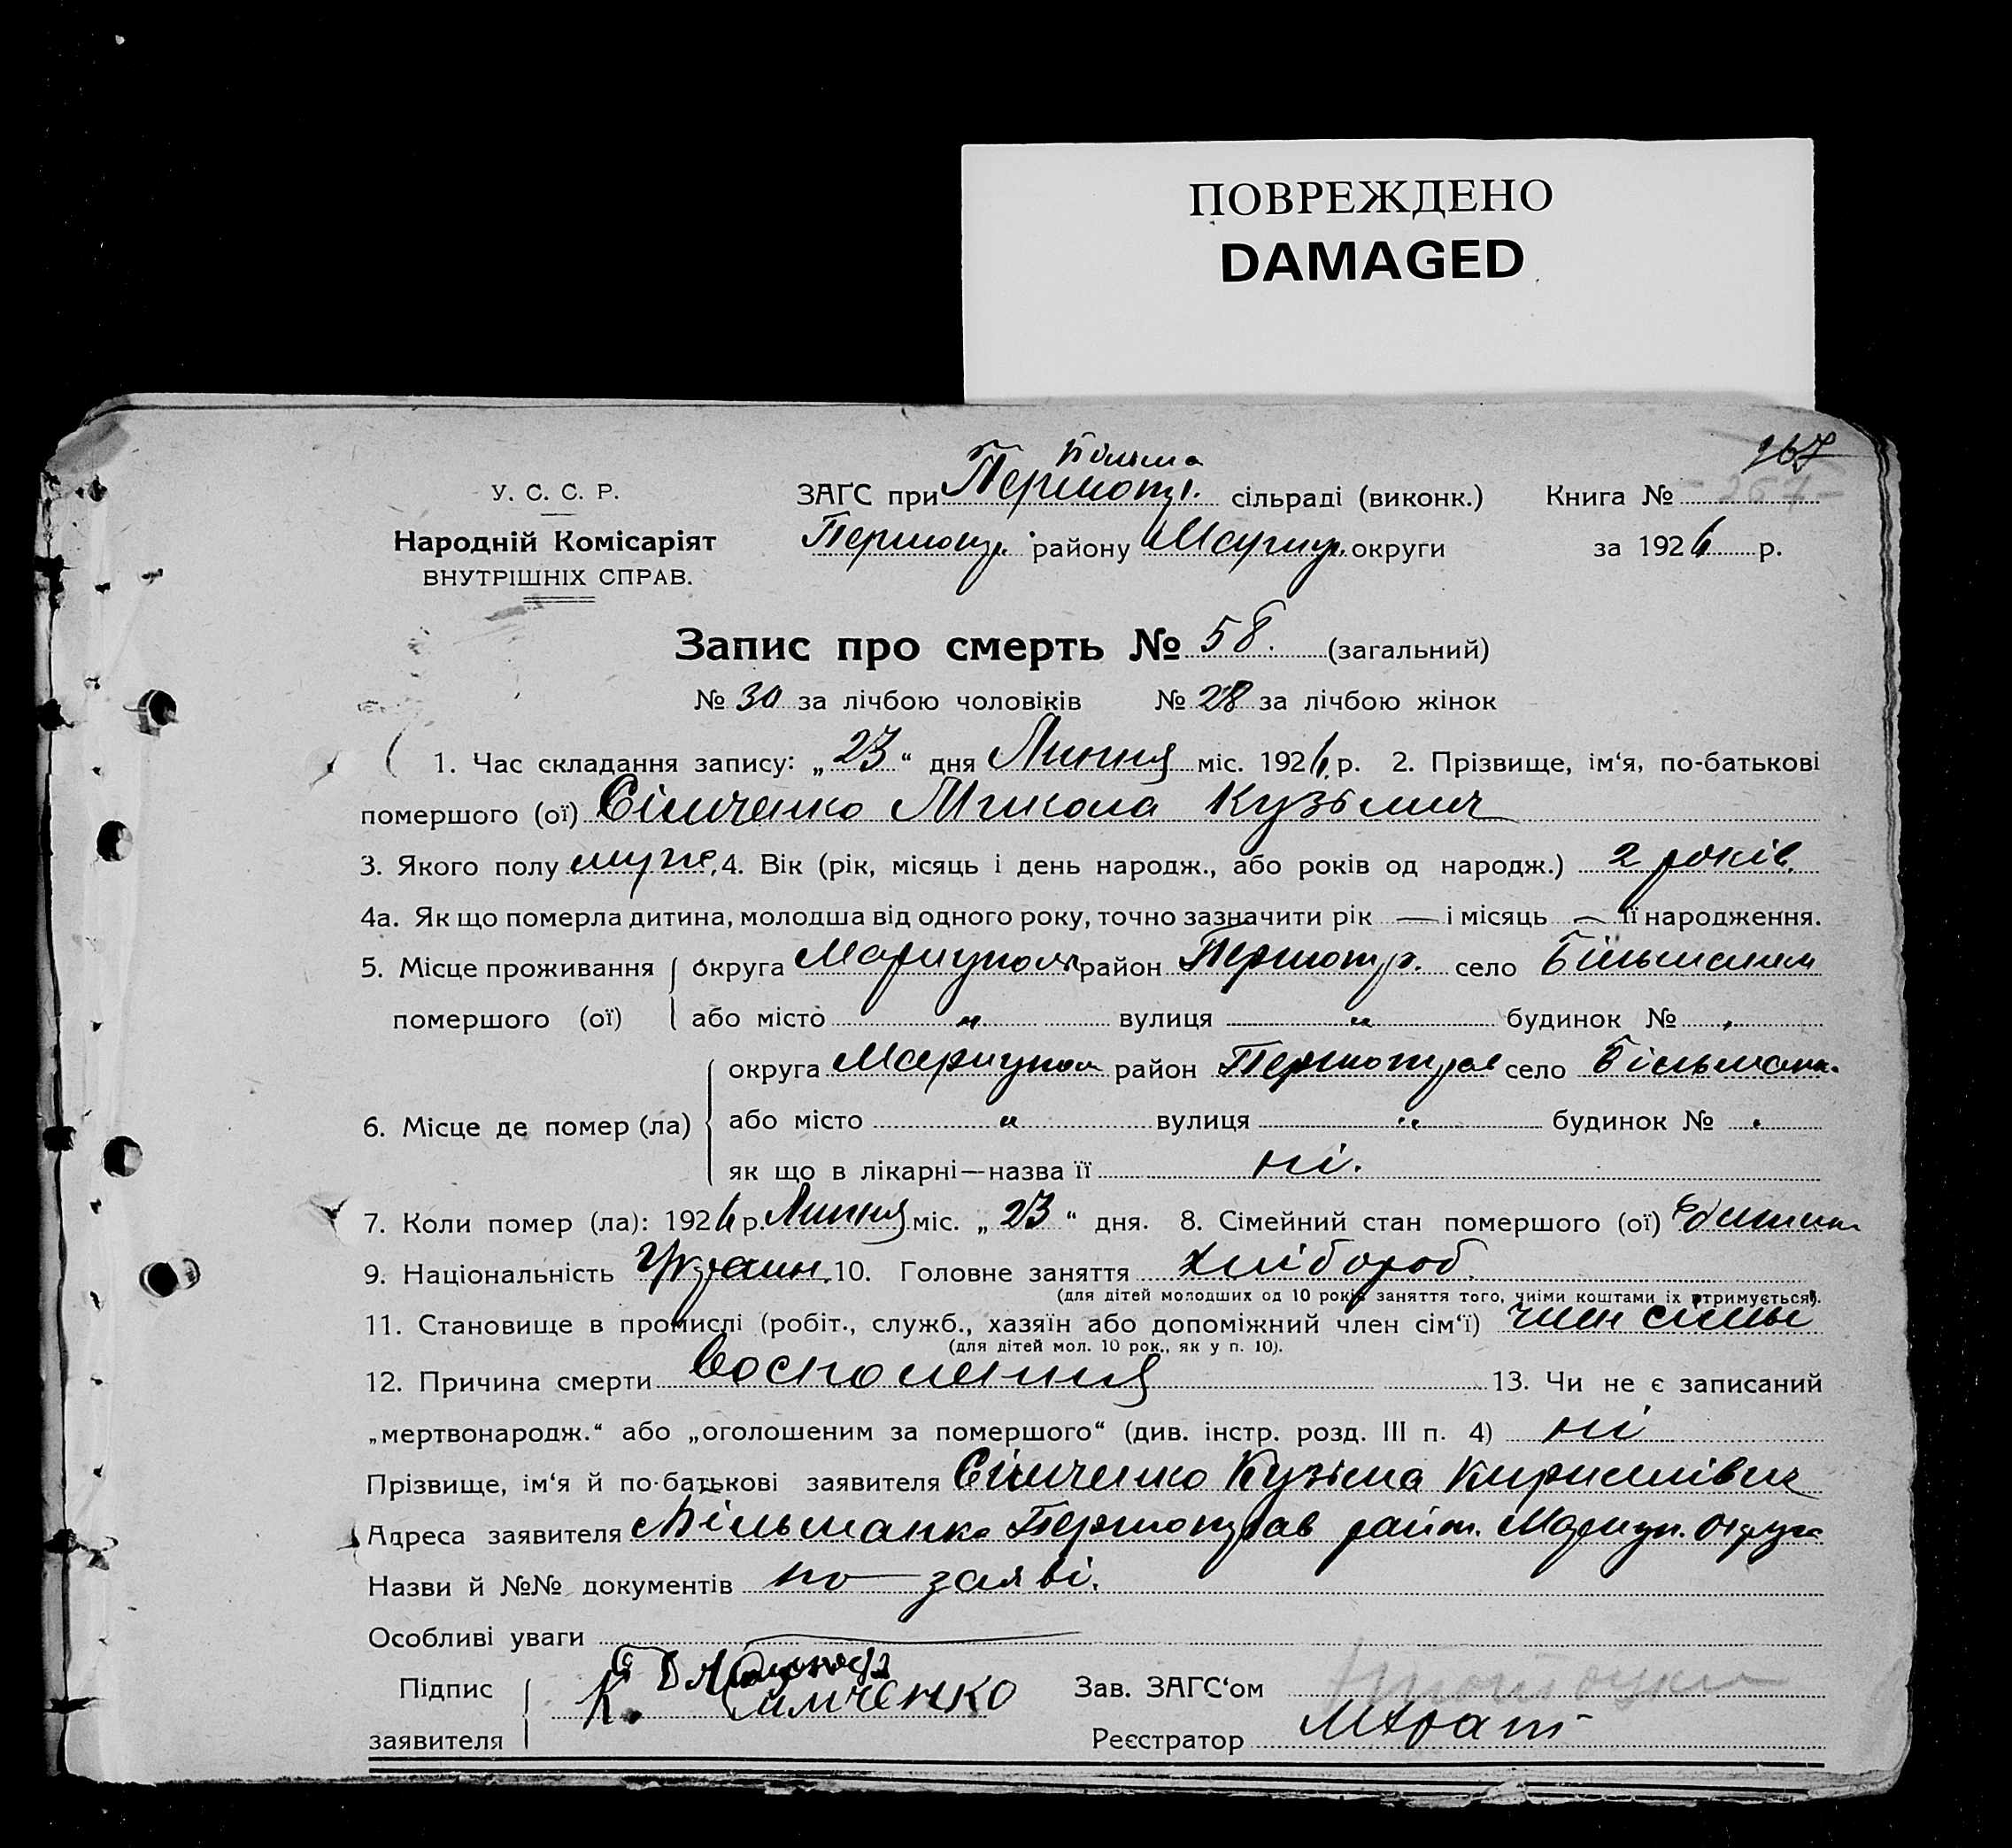 ПОВРЕЖДЕНО
DAMAGED
У. С. С. Р.
Народній Комісаріят
ВНУТРІШНІХ СПРАВ.
ЗАГС при сільраді (виконк.) Книга № 267
району Маріуп. округи за 1926 р.
Запис про смерть № 58. (загальний)
№ 30 за лічбою чоловіків № 28 за лічбою жінок
1. Час складання запису: „23“ дня Липня міс. 1926 р. 2. Прізвище, ім‘я, по-батькові
помершого (ої) Сімченко Микола Кузьмич
3. Якого полу муже, 4. Вік (рік, місяць і день народж., або років од народж.) 2 років.
4а. Як що померла дитина, молодша від одного року, точно зазначити рік — і місяць — її народження.
5. Місце проживання округа Маріупол район село
помершого (ої) або місто „ вулиця „ будинок №
округа Маріупол район село
6. Місце де помер (ла) або місто „ вулиця „ будинок №
як що в лікарні—назва її ні.
7. Коли помер (ла): 1926 р. Липня міс. „23“ дня. 8. Сімейний стан помершого (ої)
9. Національність Україн. 10. Головне заняття хлібороб.
(для дітей молодших од 10 років заняття того, чиїми коштами їх утримується).
11. Становище в промислі (робіт., служб., хазяїн або допоміжний член сім‘ї) член сімьї
(для дітей мол. 10 рок., як у п. 10).
12. Причина смерти восполения 13. Чи не є записаний
„мертвонародж.“ або „оголошеним за помершого“ (див. інстр. розд. III п. 4) ні
Прізвище, ім‘я й по-батькові заявителя Сімченко Кузьма Кирилівич
Адреса заявителя Більманка район. Маріуп. Округа
Назви й №№ документів по заяві.
Особливі уваги
Підпис К. Симченко Зав. ЗАГС‘ом
заявителя Реєстратор